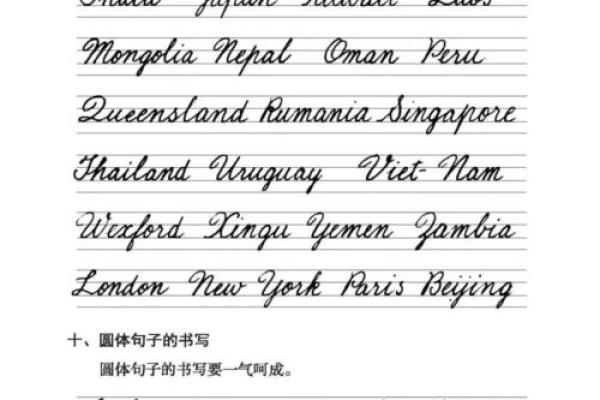 Japan Kuwait Laos
Mongolia Nepal Oman Peru
Queensland Rumania Singapore
Thailand Uruguay Viet-Nam
Wexford Xingu Yemen Zambia
London New York Paris Beijing
十、圆体句子的书写
圆体句子的书写要一气呵成。